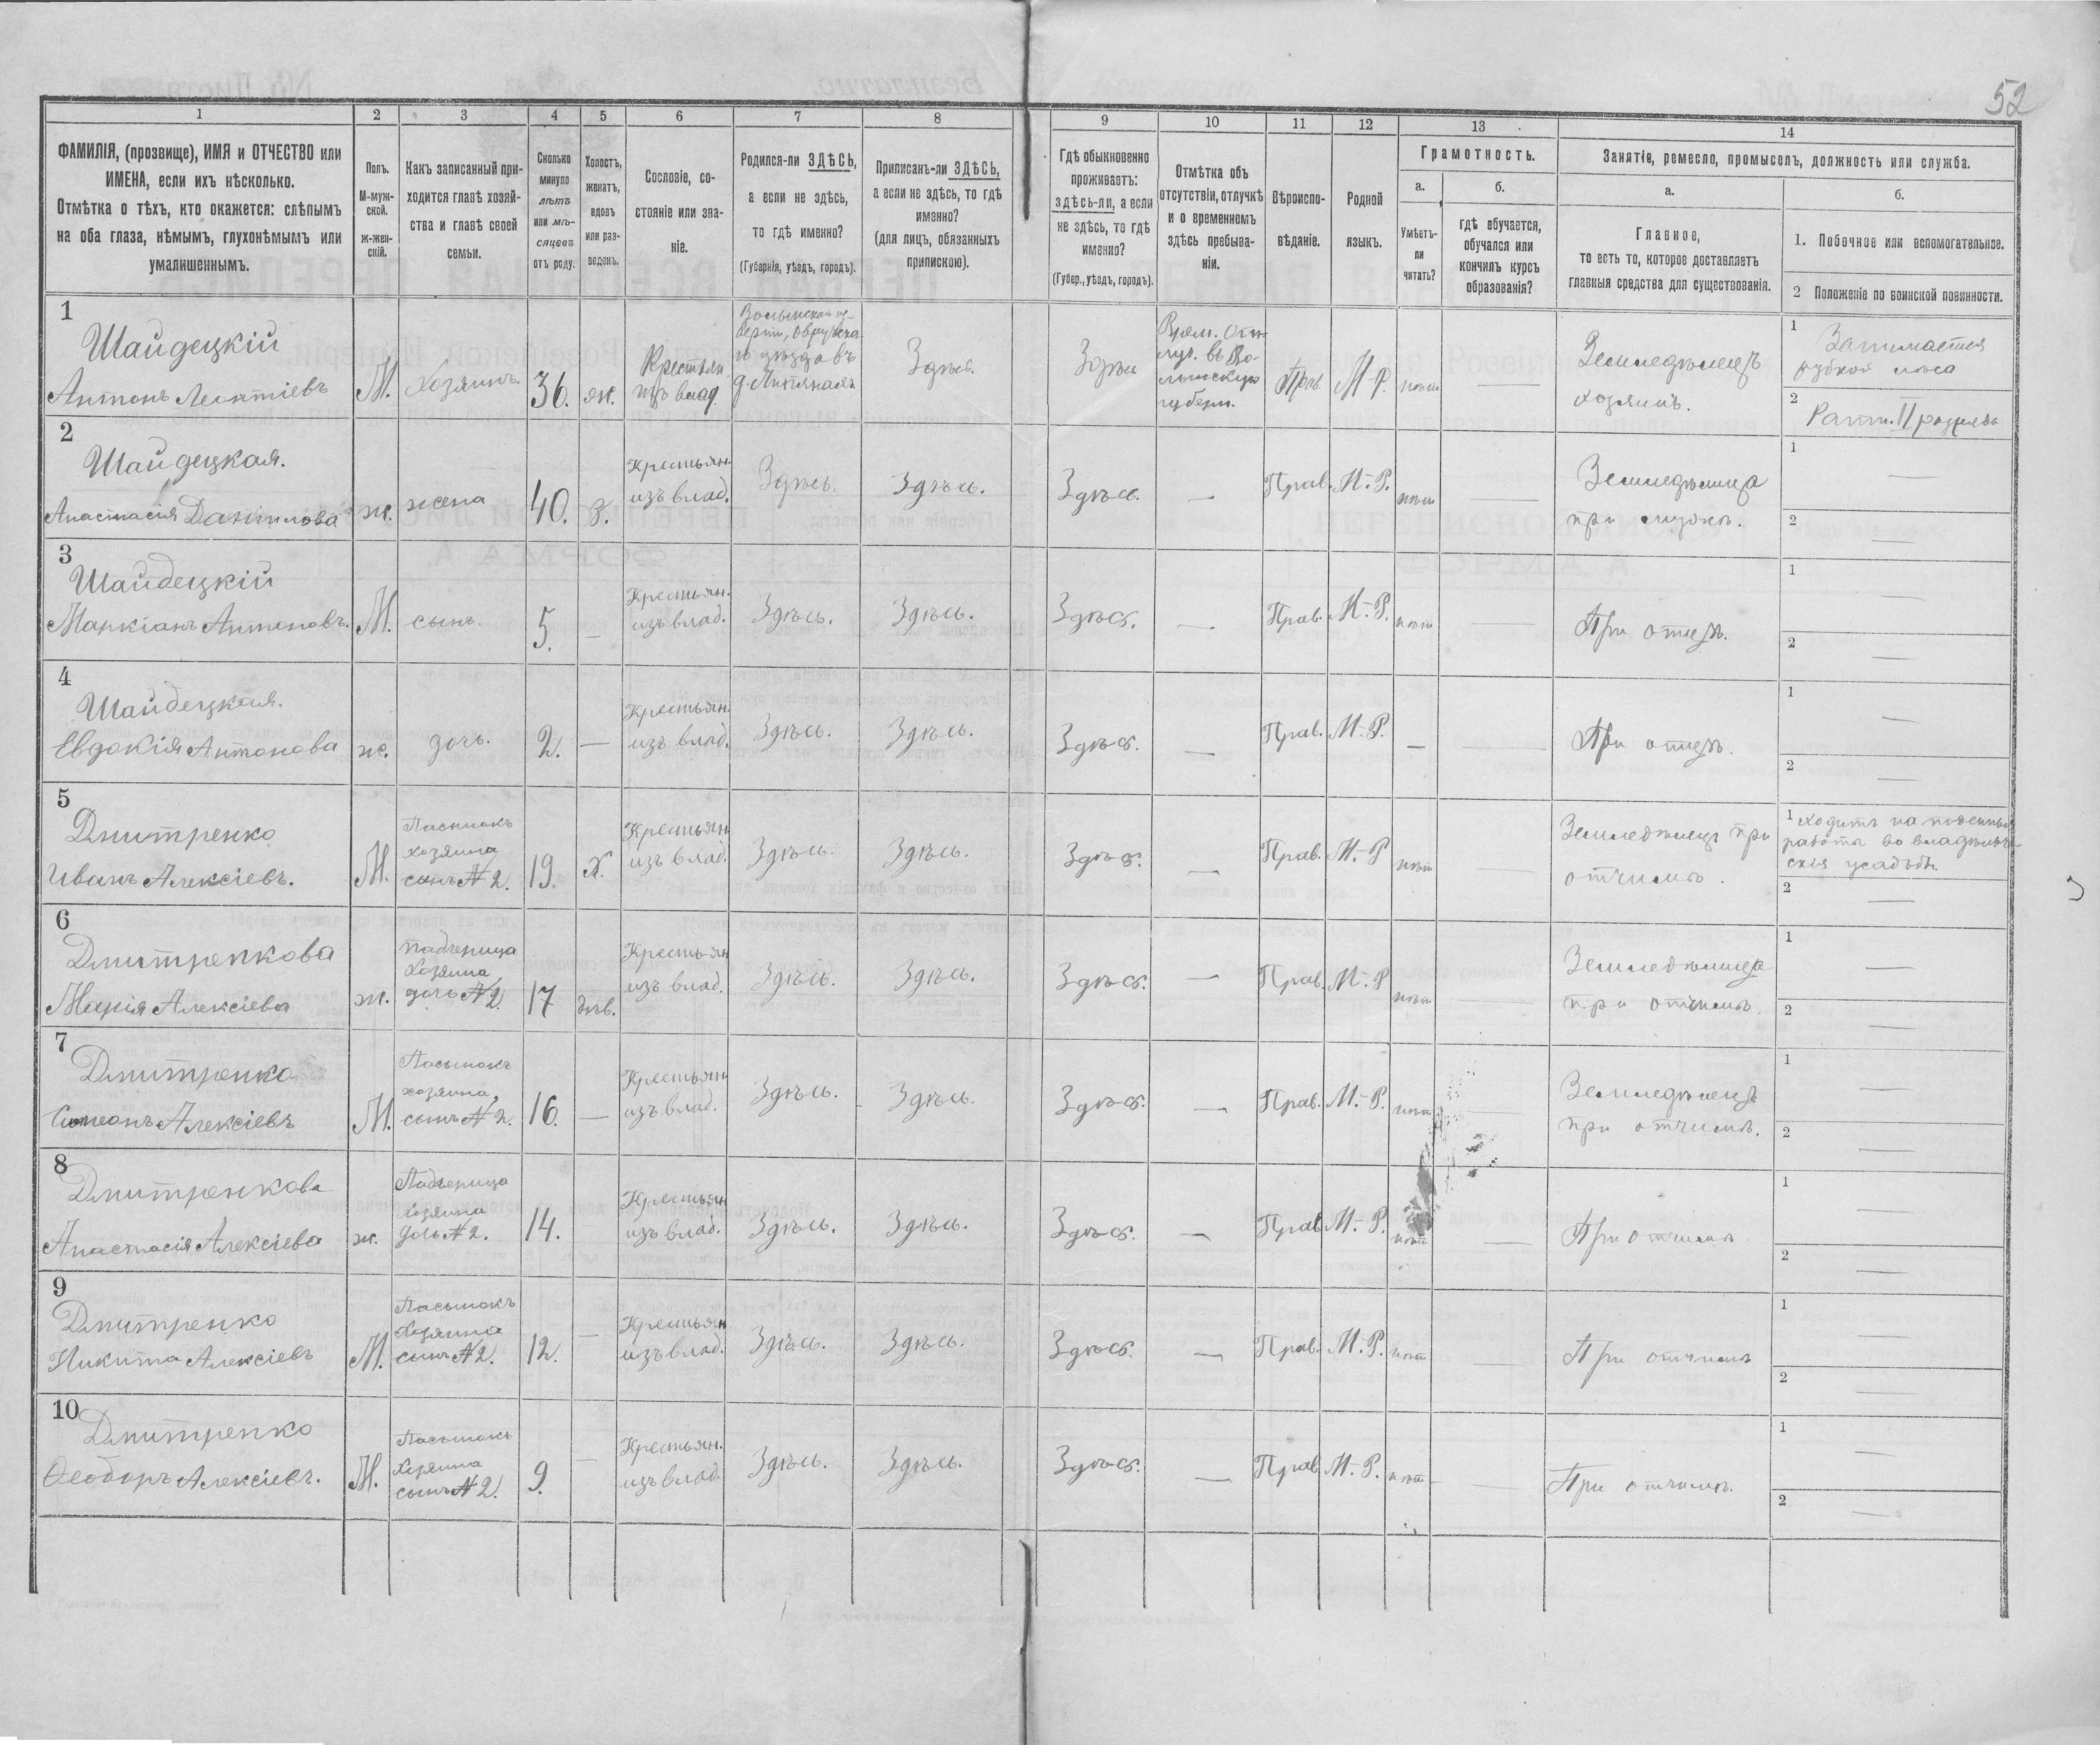 52
1 2 3 4 5 6 7 8 9 10 11 12 13 14
ФАМИЛІЯ, (прозвище), ИМЯ и ОТЧЕСТВО или
ИМЕНА, если ихъ нѣсколько.
Отмѣтка о тѣхъ, кто окажется: слѣпымъ
на оба глаза, нѣмымъ, глухонѣмымъ или
умалишеннымъ.
Полъ.
М-муж-
ской.
ж-жен-
скій.
Какъ записанный при-
ходится главѣ хозяй-
ства и главѣ своей
семьи.
Сколько
минуло
лѣтъ
или мѣ-
сяцевъ
отъ роду.
Холостъ,
женатъ,
вдовъ
или раз-
веденъ.
Сословіе, со-
стояніе или зва-
ніе.
Родился-ли ЗДѢСЬ,
а если не здѣсь,
то гдѣ именно?
(Губернія, уѣздъ, городъ).
Приписанъ-ли ЗДѢСЬ,
а если не здѣсь, то гдѣ
именно?
(для лицъ, обязанныхъ
припискою).
Гдѣ обыкновенно
проживаетъ:
здѣсь-ли, а если
не здѣсь, то гдѣ
именно?
(Губер., уѣздъ, городъ).
Отмѣтка объ
отсутствіи, отлучкѣ
и о временномъ
здѣсь пребыва-
ніи.
Вѣроиспо-
вѣданіе.
Родной
языкъ.
Грамотность.
а.
Умѣетъ-
ли
читать?
б.
гдѣ обучается,
обучался или
кончилъ курсъ
образованія?
Занятіе, ремесло, промыселъ, должность или служба.
а.
Главное,
то есть то, которое доставляетъ
главныя средства для существованія.
б.
1. Побочное или вспомогательное.
2 Положеніе по воинской повинности.
1
Шайдецкій
Антонъ Леонтіевъ
М.
Хозяинъ.
36.
ж.
Крестьян.
изъ влад.
Волынской гу-
берн., Овручска-
го уѣзда въ
д.
Здѣсь.
Здѣсь
Врем. Отл-
уч. въ Во-
лынскую
губерн.
Прав.
М-Р.
нѣт
Земледѣлецъ
хозяинъ.
1 Занимается
рубкой лѣса
2 Ратн. II разряда
2
Шайдецкая.
Анастасія Данилова
ж.
жена
40.
З.
Крестьян.
изъ влад.
Здѣсь.
Здѣсь.
Здѣсь.
—
Прав.
М.-Р.
нѣт
—
Земледѣлица
при мужѣ.
1 —
2 —
3
Шайдецкій
Маркіанъ Антоновъ.
М.
сынъ.
5.
—
Крестьян.
изъ влад.
Здѣсь.
Здѣсь.
Здѣсь.
—
Прав.
М.-Р.
нѣт
—
При отцѣ.
1 —
2 —
4
Шайдецкая.
Евдокія Антонова
ж.
дочь.
2.
—
Крестьян.
изъ влад.
Здѣсь.
Здѣсь.
Здѣсь.
—
Прав.
М.-Р.
—
—
При отцѣ.
1 —
2 —
5
Дмитренко
Иванъ Алексіевъ.
М.
Пасынокъ
хозяина
сынъ №2.
19.
Х.
Крестьян
изъ влад.
Здѣсь.
Здѣсь.
Здѣсь.
—
Прав.
М.-Р
нѣт
—
Земледѣлецъ при
отчимѣ.
1 Ходитъ на поденныя
работа во владѣльче-
скія усадьбы.
2 —
6
Дмитренкова
Марія Алексіева
ж.
падчерица
Хозяина
дочь №2.
17
дѣв.
Крестьян
изъ влад.
Здѣсь.
Здѣсь.
Здѣсь.
—
Прав.
М.-Р
нѣт
—
Земледѣлица
при отчимѣ.
1 —
2 —
7
Дмитренко
Симеонъ Алексіевъ
М.
Пасынокъ
хозяина,
сынъ №2.
16.
—
Крестьян
изъ влад.
Здѣсь.
Здѣсь.
Здѣсь.
—
Прав.
М.-Р.
нѣт
Земледѣлецъ
при отчимѣ.
1 —
2 —
8
Дмитренкова
Анастасія Алексіева
ж.
Падчерица
хозяина
дочь №2.
14.
—
Крестьян
изъ влад.
Здѣсь.
Здѣсь.
Здѣсь.
—
Прав.
М.-Р.
нѣт
—
При отчимѣ
1 —
2 —
9
Дмитренко
Никита Алексіевъ
М.
Пасынокъ
Хозяина
сынъ №2.
12.
—
Крестьян
изъ влад.
Здѣсь.
Здѣсь.
Здѣсь.
—
Прав.
М.-Р.
нѣт
—
При отчимѣ
1 —
2 —
10
Дмитренко
Ѳеодоръ Алексіевъ.
М.
Пасынокъ
Хозяина
сынъ №2.
9.
—
Крестьян.
изъ влад.
Здѣсь.
Здѣсь.
Здѣсь.
—
Прав.
М.-Р.
нѣт
—
При отчимѣ.
1 —
2 —